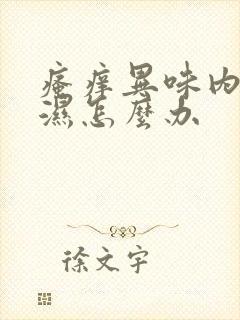 瘙痒異味内
濕怎麼办
徐文宇